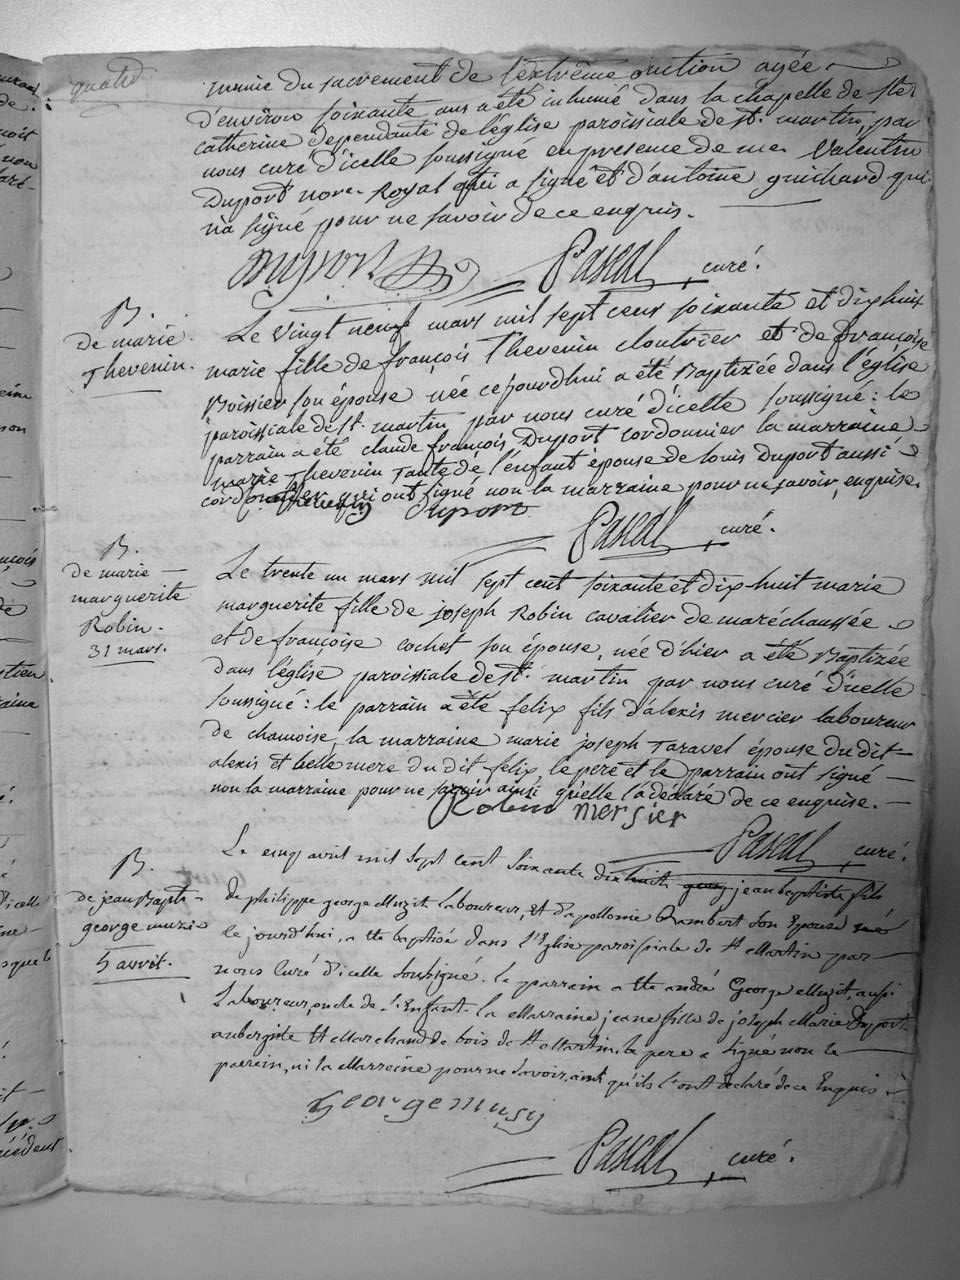 quatre
munie du sacrement de l'extrême onction agée
d'environ soixante ans a été inhumé dans la chapelle de ste
catherine dependante de l'église paroissiale de st. martin, par
nous curé d'icelle soussigné en presence de me. Valentin
Duport nore. Royal qui a signé et d'antoine guichard qui
n'a signé pour ne savoir de ce enquis.
Duport Pascal, curé.
B.
de marie
Thevenin.
Le vingt neuf mars mil sept cens soixante et dix huit
marie fille de françois Thevenin cloutrier et de françoise
Boissier son épouse née cejourdhui a été Baptizée dans l'église
paroissiale de st. martin par nous curé d'icelle soussigné : le
parrain a été claude françois Duport cordonnier la marraine
marie Thevenin Tante de l'enfant épouse de louis Duport aussi
cordonnier qui ont signé non la marraine pour ne savoir, enquise.
Thevenin Duport
Pascal, curé.
B.
de marie
marguerite
Robin.
31 mars.
Le trente un mars mil sept cent soixante et dix-huit marie
marguerite fille de joseph Robin cavalier de maréchaussée
et de françoise cochet son épouse, née d'hier a été Baptizée
dans l'église paroissiale de st. martin par nous curé d'icelle
soussigné : le parrain a été felix fils d'alexis mercier laboureur
de chamoise, la marraine marie joseph Taravel épouse du dit
alexis et belle mere du dit felix, le pere et le parrain ont signé
non la marraine pour ne savoir ainsi qu'elle l'a déclaré de ce enquise.
Robin mersier
Pascal, curé.
B.
de jean Bapte
george muzit
5 avril.
Le cinq avril mil sept cent soixante dix huit jean baptiste fils
de philippe george Muzit laboureur, Et d'apollonie Rambert son Epouse né
le jourd'hui, a été baptisé dans l'Eglise paroissiale de St Martin par
nous Curé d'icelle soussigné. le parrain a été andré George Muzit, aussi
Laboureur, oncle de l'Enfant. la Marraine jeane fille de joseph Marie Duport
aubergiste Et Marchand de bois de St Martin. le pere a signé non le
parrein, ni la Marreine pour ne savoir, ainsi qu'ils l'ont declaré de ce Enquis
George musy
Pascal, curé.